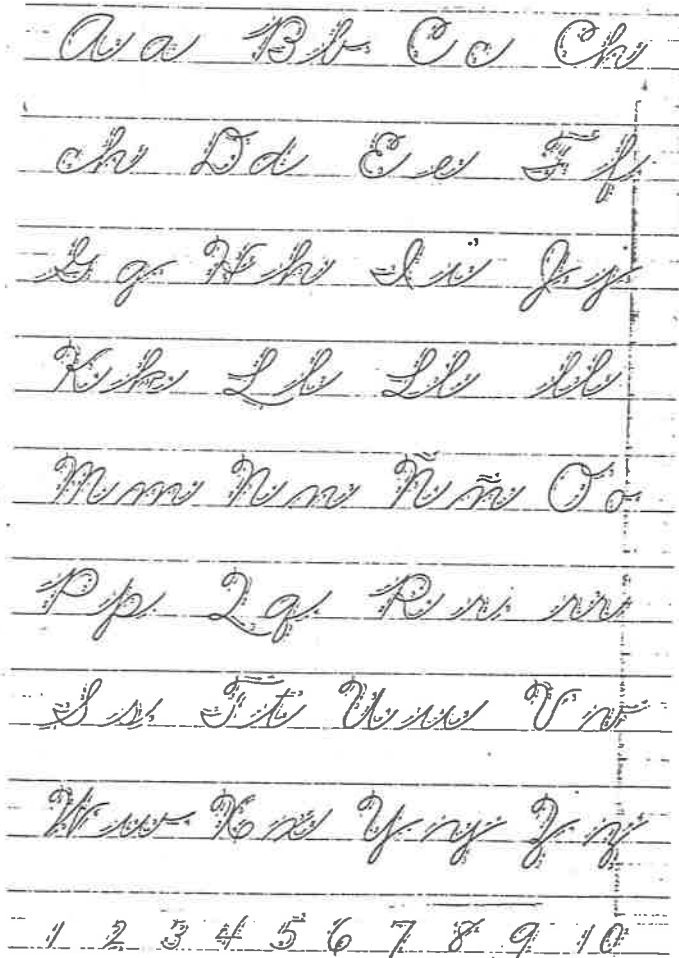 A a B b C c Ch
ch D d E e F f
G g H h I i J j
K k L l Ll ll
M m N n Ñ ñ O o
P p Q q R r rr
S s T t U u V v
W w X x Y y Z z
1 2 3 4 5 6 7 8 9 10